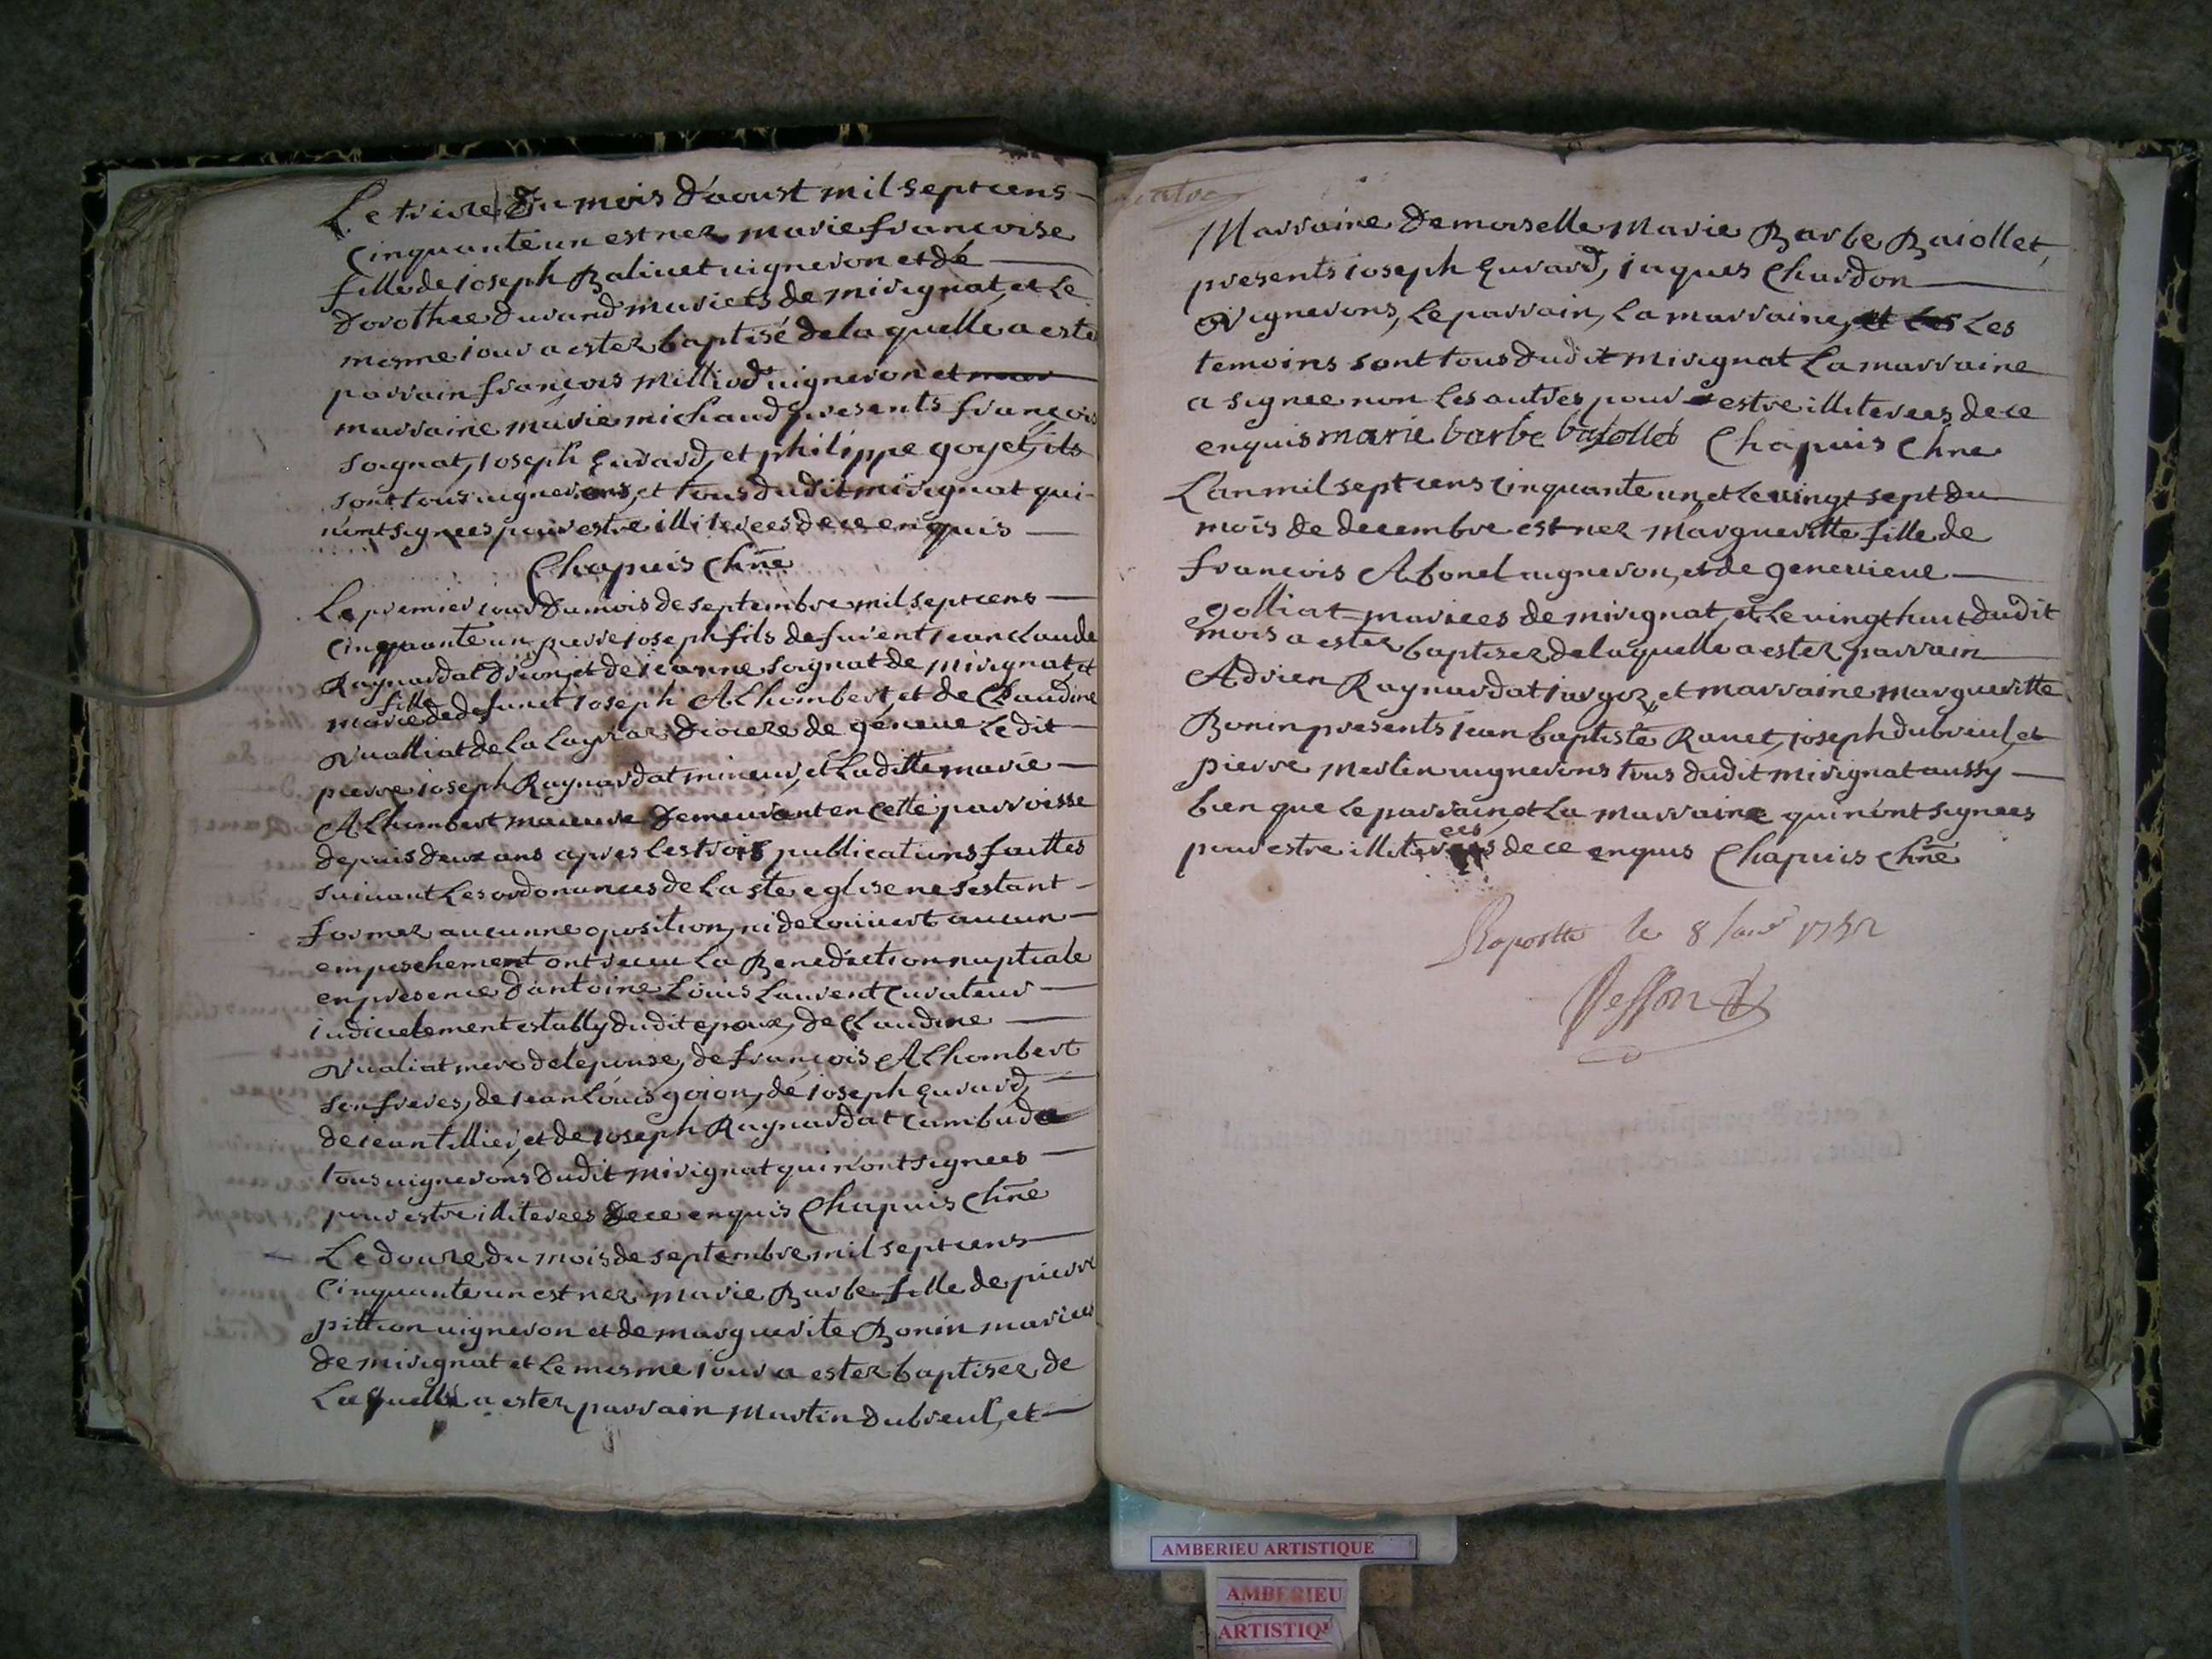 Le treize du mois d'aoust mil sept cens
cinquante un est nez marie francoise
fille de ioseph Balivet uigneron et de
dorothee durand mariees de mirignat, et le
mesme iour a ester baptisé de la quelle a este
parrain françois milliod uigneron et
marraine marie michaud presents françois
soignat, ioseph Euvard, et philippe goyet, ils
sont tous uignerons, et tous dudit mirignat qui
n'ont signees pour estre illiterees de ce enquis
Chapuis Chne
Le premier iour du mois de septembre mil sept cens
cinquante un pierre ioseph fils de fuient iean claude
Raynardat drion, et de ieanne soignat de mirignat, et
marie fille de defunct ioseph ALhombert, et de Claudine
Vualliat de la diocese de geneue Ledit
pierre ioseph Raynardat mineur, et Laditte marie
ALhombert maieure demeurant en cette parroisse
depuis deux ans apres les trois publications faittes
suiuant Les ordonances de La ste eglise ne s'estant
formez aucunne oposition, ni decouuert aucun
empeschement ont receu La Benediction nuptiale
en presence d'antoine Louis Laurent Curateur
iudicielement estably dudit epoux, de Claudine
Vualiat mere de lepouse, de françois ALhombert
son freres, de iean Louis goion, de ioseph Euvard,
de iean tillier, et de ioseph Raynardat cambuda
tous uignerons dudit mirignat qui n'ont signees
pour estre illiterees de ce enquis Chapuis Chne
Le douze du mois de septembre mil sept cens
cinquante un est nez marie Barbe fille de pierre
pittion uigneron et de marguerite Bonin mariees
de mirignat et le mesme iour a ester baptisez de
Laquelle a ester parrain martin dubreul, et
Marraine demoiselle Marie Barbe Baiollet,
presents ioseph Euvard, iaques Chardon
Vignerons, Le parrain, La marraine, et les Les
temoins sont tous dudit mirignat La marraine
a signee non Les autres pour estre illiterees de ce
enquis marie barbe baJollet Chapuis Chne
L'an mil sept cens cinquante un, et le uingt sept du
mois de decembre est nez Marguerite fille de
françois Abonel uigneron, et de geneuieue
golliat mariees de mirignat, et Le uingt huit dudit
mois a ester baptisez de laquelle a ester parrain
Adrien Raynardat iargoz, et marraine marguerite
Bonin presents iean baptiste Rauet, ioseph dubreul, et
pierre Merlin uignerons tous dudit mirignat aussy
bien que Le parrain et La marraine qui n'ont signees
pour estre illiterees de ce enquis Chapuis Chne
Raportté le 8 1752
AMBERIEU ARTISTIQUE
AMBERIEU
ARTISTIQ